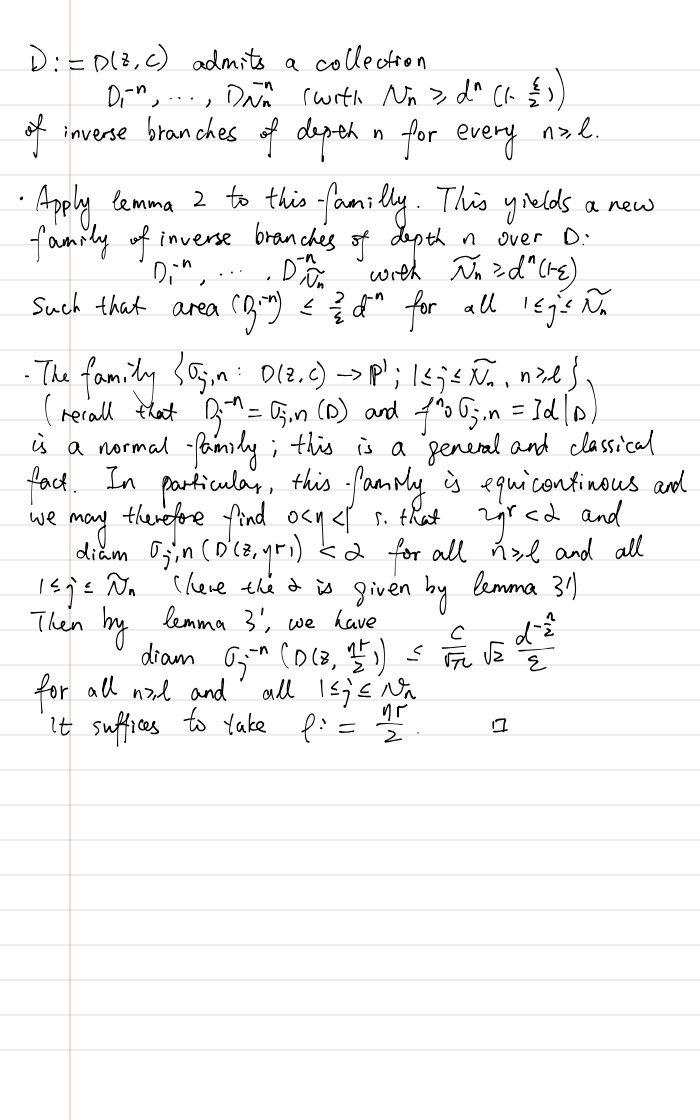 D := D(z,c) admits a collection
D₁⁻ⁿ, ..., D_{Nₙ}⁻ⁿ (with Nₙ ≥ dⁿ (1- ε/2))
of inverse branches of depth n for every n≥l.
· Apply lemma 2 to this familly. This yields a new
family of inverse branches of depth n over D:
D₁⁻ⁿ, .... D_{Ñₙ}⁻ⁿ with Ñₙ ≥ dⁿ(1-ε)
Such that area (Dⱼ⁻ⁿ) ≤ 2/ε d⁻ⁿ for all 1≤j≤ Ñₙ
- The family {σⱼ,ₙ : D(z,c) → ℙ¹ ; 1≤j≤Ñₙ, n≥l}
(recall that Dⱼ⁻ⁿ = σⱼ,ₙ (D) and fⁿ∘σⱼ,ₙ = Id|D)
is a normal family; this is a general and classical
fact. In particular, this family is equicontinous and
we may therefore find 0<η<1 s. that 2ηr < α and
diam σⱼ,ₙ (D(z,ηr)) < α for all n≥l and all
1≤j≤ Ñₙ (here the α is given by lemma 3')
Then by lemma 3', we have
diam σⱼ⁻ⁿ (D(z, ηr/2)) ≤ C/√π √2 d^{-n/2}/ε
for all n≥l and all 1≤j≤ Nₙ
it suffices to take ρ := ηr/2. □